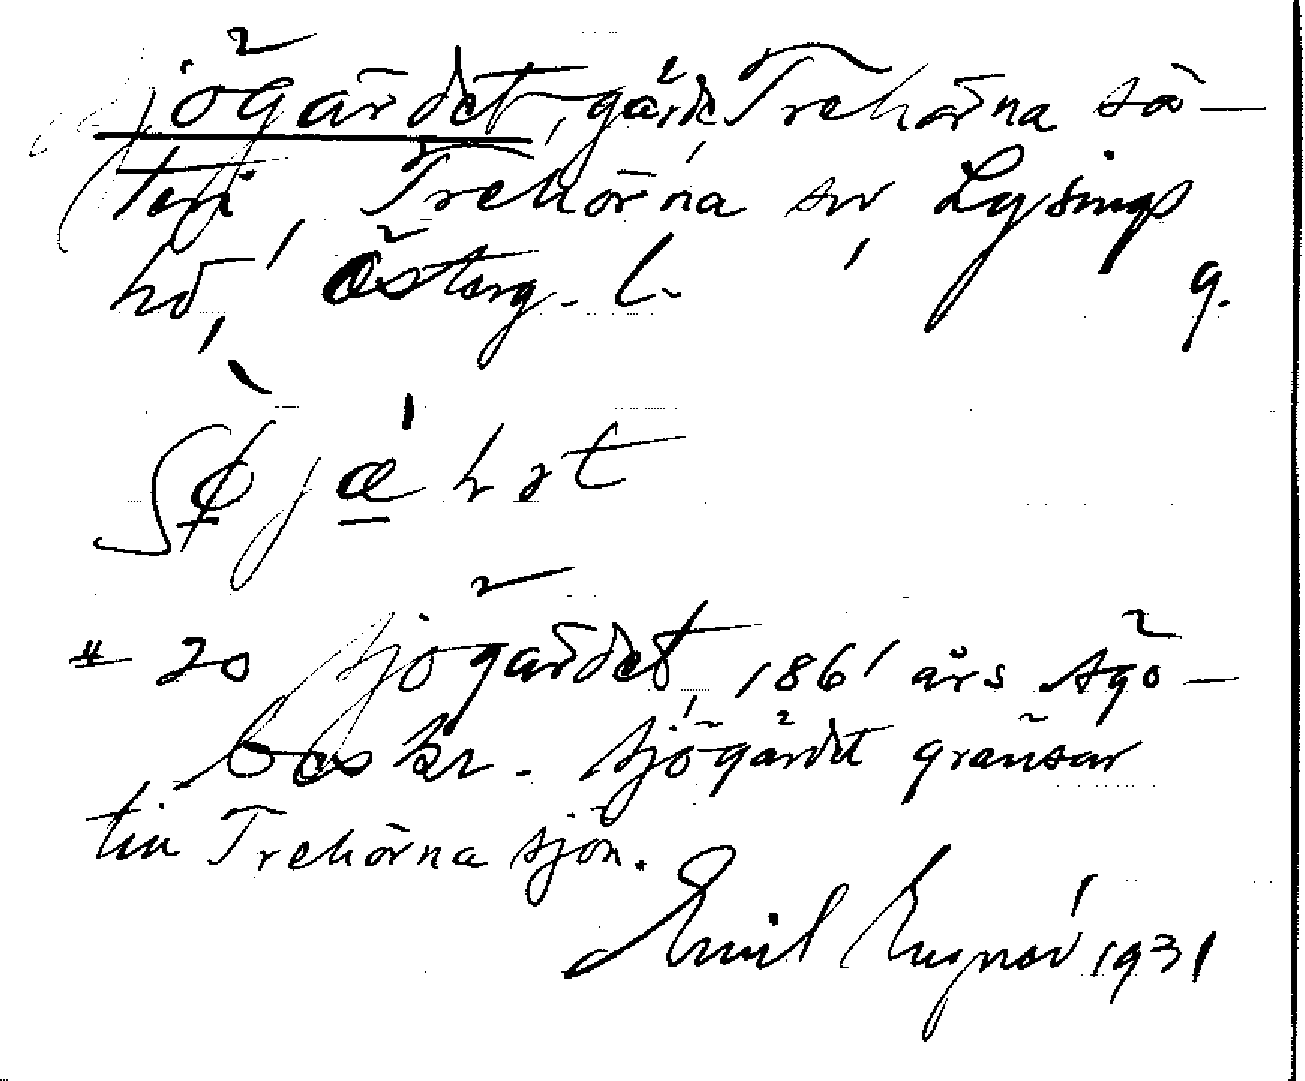 Sjögärdet, gärde Trehörna sä-
teri, Trehörna sn, Lysings
hd, Österg. l. 9.
# 20 Sjögärdet 1861 års ägo-
beskr. Sjögärdet gränsar
till Trehörna sjön.
Emil 1931